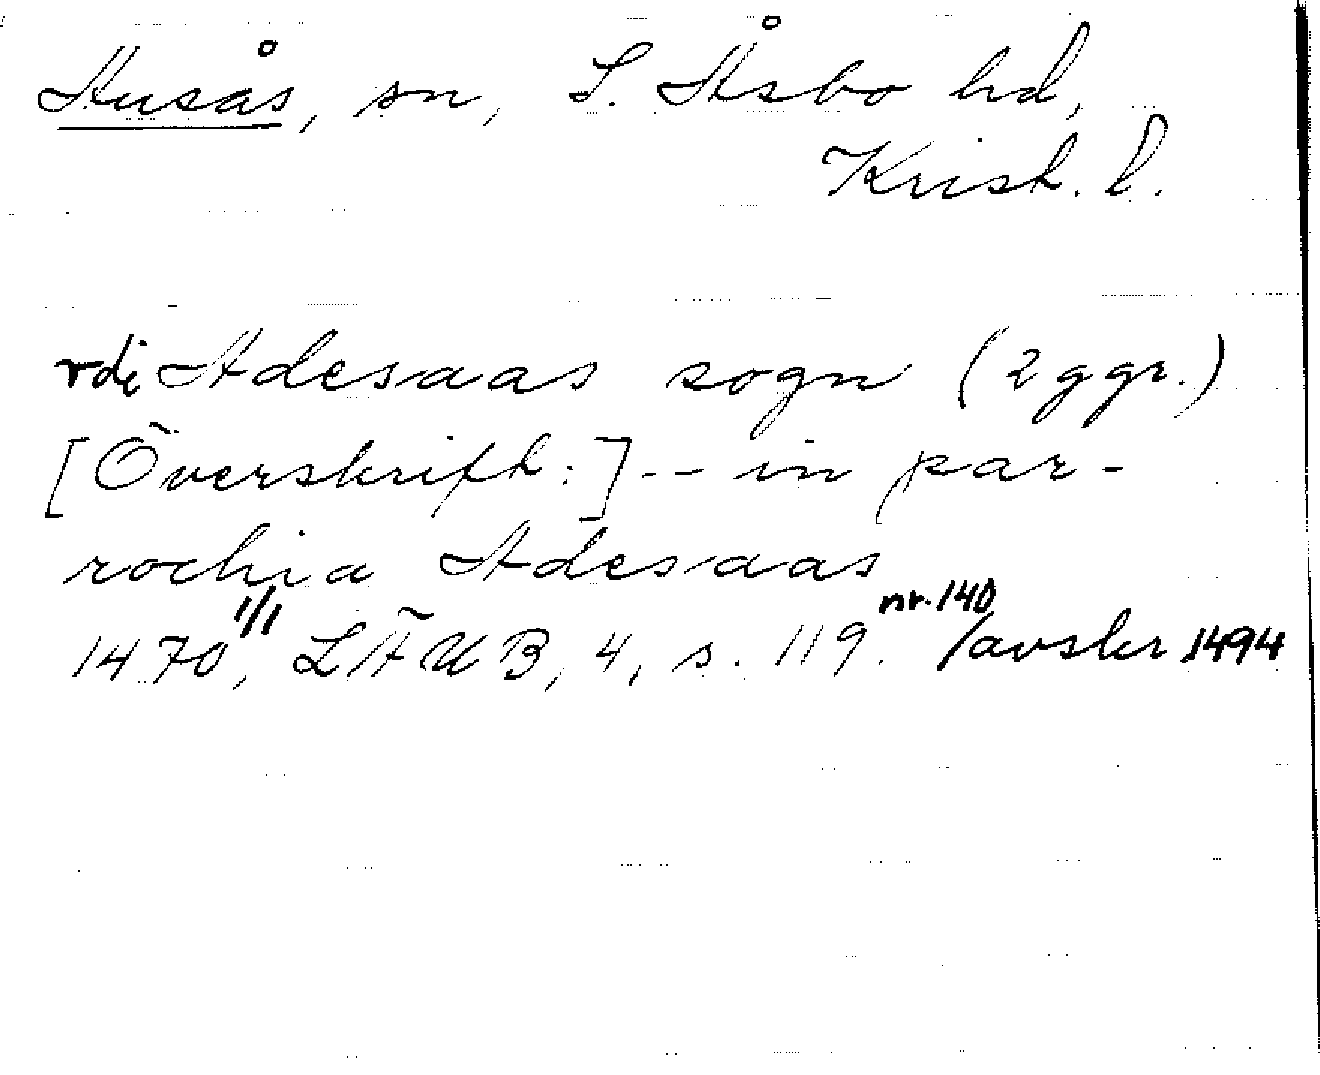 Ausås, sn, S. Åsbo hd,
Krist. l.
vdi Adesaas sogn (2 ggr.)
[Överskrift:] -- in par-
rochia Adesaas
1470 1/1, LÄUB, 4, s. 119. nr. 140 /avskr 1494